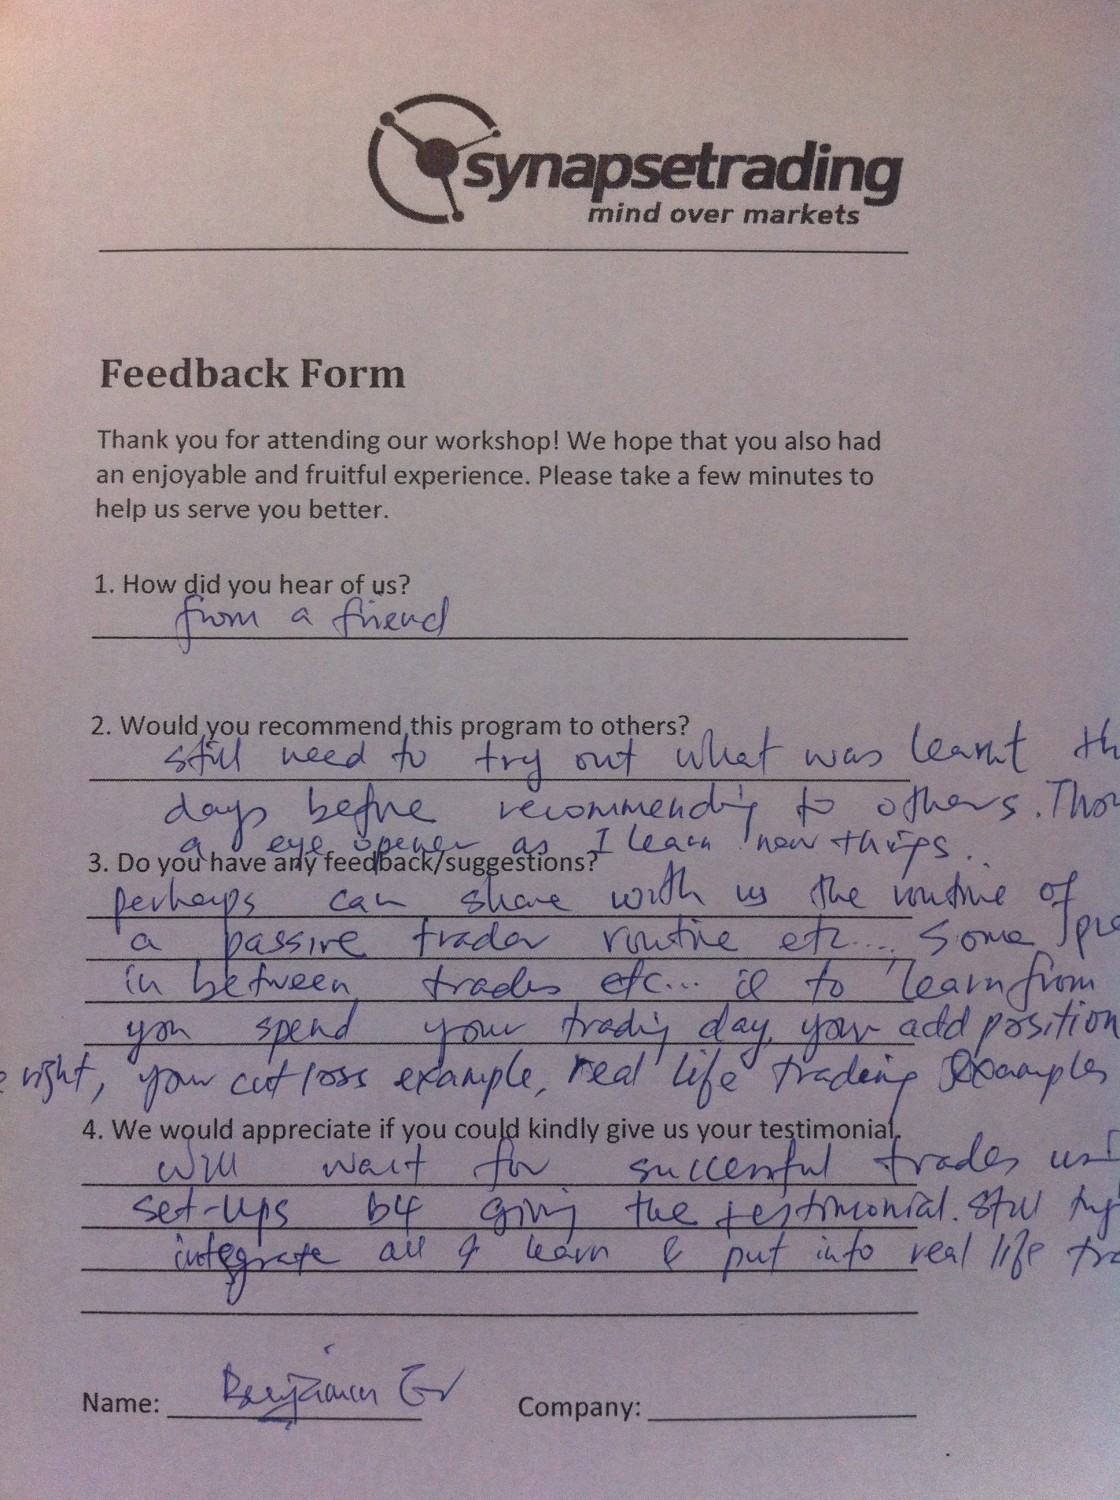 synapsetrading
mind over markets
Feedback Form
Thank you for attending our workshop! We hope that you also had
an enjoyable and fruitful experience. Please take a few minutes to
help us serve you better.
1. How did you hear of us?
from a friend
2. Would you recommend this program to others?
still need to try out what was learnt th
days before recommending to others. Thou
a eye opener as I learn new things..
3. Do you have any feedback/suggestions?
perhaps can share with us the routine of
a passive trader routine etc.... Some pre
in between trades etc... to learn from
you spend your trading day, your add position
right, your cut loss example, real life trading examples
4. We would appreciate if you could kindly give us your testimonial.
will wait for successful trades usi
set-ups b4 giving the testimonial. Still try
integrate all I learn & put into real life tra
Name: Benjamin
Company: